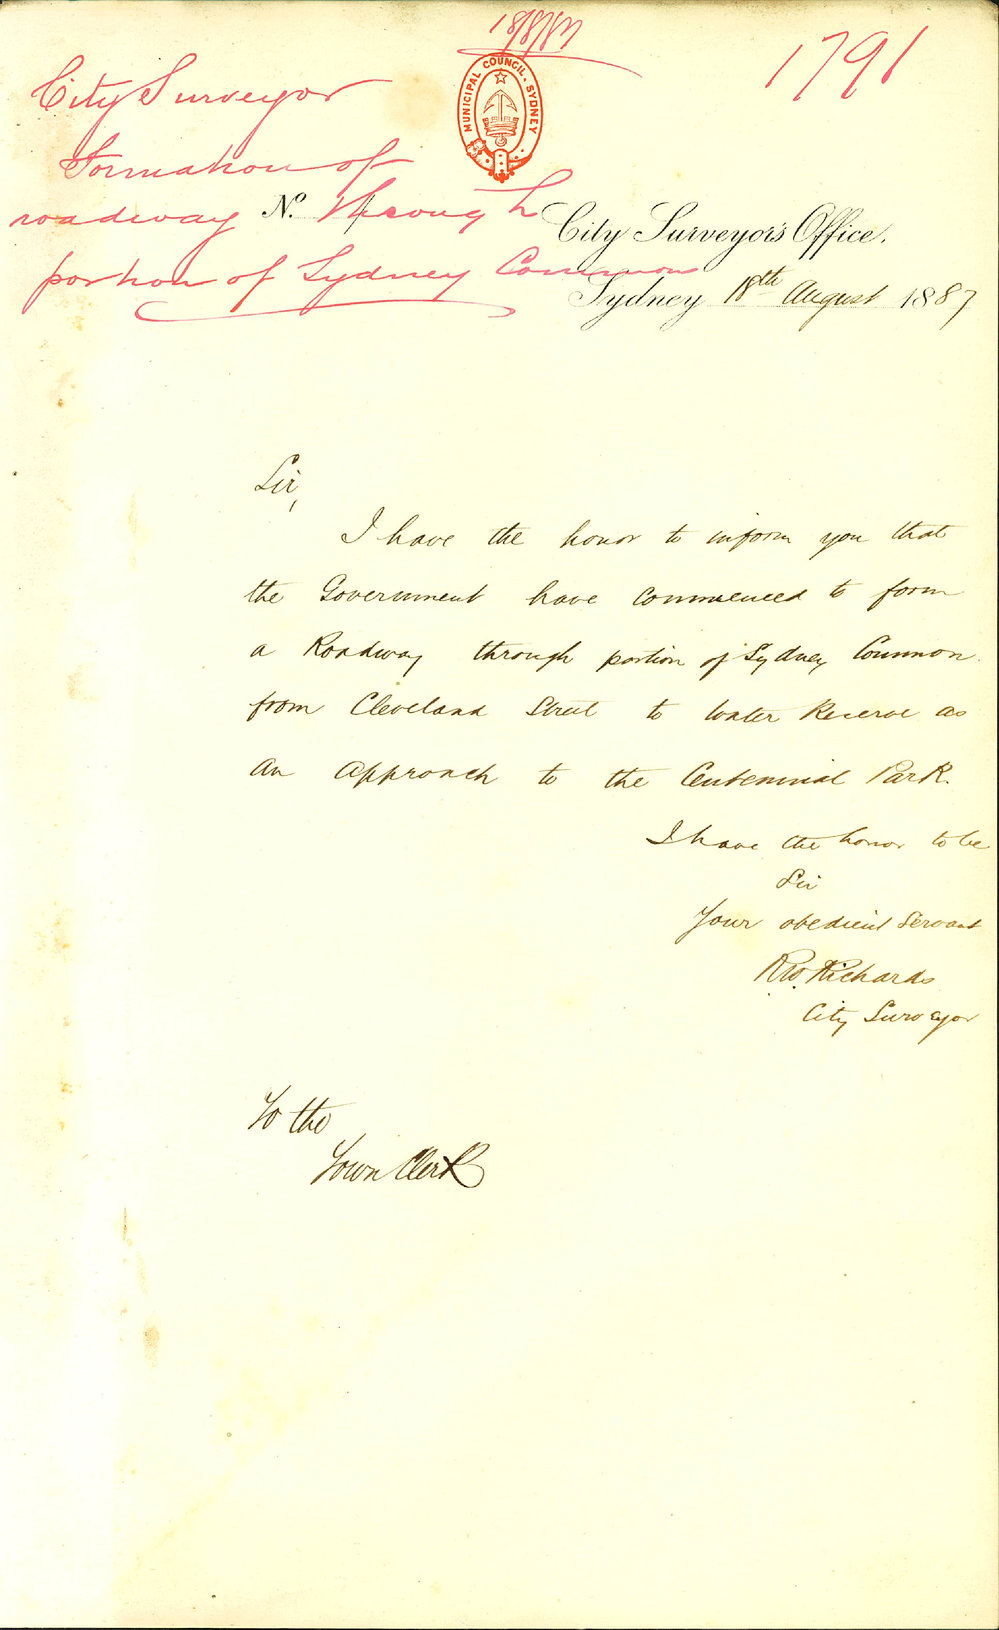 18/8/87
1791
MUNICIPAL COUNCIL. SYDNEY
City Surveyor
Formation of
roadway through
portion of Sydney Common
No.
City Surveyor's Office.
Sydney 18th August 1887
Sir,
I have the honor to inform you that
the Government have commenced to form
a Roadway through portion of Sydney Common
from Cleveland Street to Water Reserve as
an approach to the Centennial Park.
I have the honor to be
Sir
Your obedient Servant
RW. Richards
City Surveyor
To the
Town Clerk